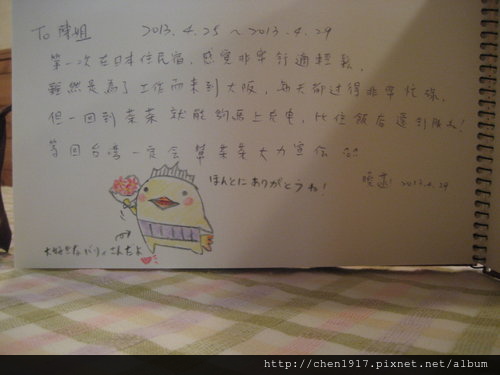 To 陳姐 2013.4.25 ~ 2013.4.29
第一次在日本住民宿，感覺非常舒適輕鬆，
雖然是為了工作而來到大阪，每天都过得非常忙碌，
但一回到菜菜 就能夠馬上充电，比住飯店還舒服！
等回台湾一定会幫菜菜大力宣伝
ほんとにありがとうね！
2013.4.29
大好きなバリィさんだよ
http://chen1917.pixnet.net/album